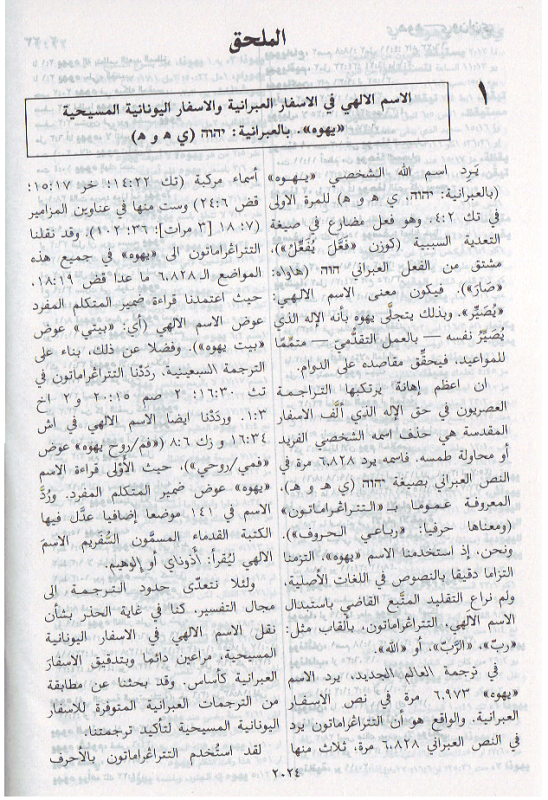 الملحق
١
الاسم الالهي في الاسفار العبرانية والاسفار اليونانية المسيحية
«يهوه». بالعبرانية: יהוה (ي ه‍ و ه‍)
يَرِد اسم الله الشخصي «يهوه»
(بالعبرانية: יהוה، ي ه‍ و ه‍) للمرة الاولى
في تك ٢:٤. وهو فعل مضارع في صيغة
التعدية السببية (كوزن «فَعَّلَ يُفَعِّلُ»)،
مشتق من الفعل العبراني הוה (هاواه:
«صَارَ»). فيكون معنى الاسم الالهي:
«يُصَيِّر». وبذلك يتجلَّى يهوه بأنه الإله الذي
يُصَيِّرُ نفسه — بالعمل التقدُّمي — متمِّمًا
للمواعيد، فيحقِّق مقاصده على الدوام.
ان اعظم إهانة يرتكبها التراجمة
العصريون في حق الإله الذي ألَّف الاسفار
المقدسة هي حذف اسمه الشخصي الفريد
أو محاولة طمسه. فاسمه يرد ٦٬٨٢٨ مرة في
النص العبراني بصيغة יהוה (ي ه‍ و ه‍)،
المعروفة عموما بـ «التتراغراماتون»
(ومعناها حرفيا: «رباعي الحروف»).
ونحن، إذ استخدمنا الاسم «يهوه»، التزمنا
التزاما دقيقا بالنصوص في اللغات الأصلية،
ولم نراعِ التقليد المتَّبع القاضي باستبدال
الاسم الالهي، التتراغراماتون، بألقاب مثل:
«ربّ»، «الرَّبّ»، أو «الله».
في ترجمة العالم الجديد، يرد الاسم
«يهوه» ٦٬٩٧٣ مرة في نص الاسفار
العبرانية. والواقع هو أن التتراغراماتون يرد
في النص العبراني ٦٬٨٢٨ مرة، ثلاث منها
أسماء مركبة (تك ٢٢:١٤؛ خر ١٧:١٥؛
قض ٦:٢٤) وست منها في عناوين المزامير
(٧:١٨ [٣ مرات]؛ ٣٦:١؛ ١٠٢). وقد نقلنا
التتراغراماتون الى «يهوه» في جميع هذه
المواضع الـ ٦٬٨٢٨ ما عدا قض ١٩:١٨،
حيث اعتمدنا قراءة ضمير المتكلم المفرد
عوض الاسم الالهي (أي: «بيتي» عوض
«بيت يهوه»). وفضلا عن ذلك، بناء على
الترجمة السبعينية، ردَدْنا التتراغراماتون في
تث ٣٠:١٦؛ ٢ صم ١٥:٢٠ و ٢ اخ
٣:١. وردَدْنا ايضا الاسم الالهي في اش
٣٤:١٦ و زك ٦:٨ («فم/روح يهوه» عوض
«فمي/روحي»)، حيث الأَوْلى قراءة الاسم
«يهوه» عوض ضمير المتكلم المفرد. ورُدَّ
الاسم في ١٤١ موضعا إضافيا عدَّل فيها
الكتبة القدماء المسمَّون السُّفَريم الاسمَ
الالهي ليُقرأ: أَدُوناي أو إِلوهيم.
ولئلا نتعدّى حدود الترجمة الى
مجال التفسير، كنا في غاية الحذر بشأن
نقل الاسم الالهي في الاسفار اليونانية
المسيحية، مراعين دائما وبتدقيق الاسفارَ
العبرانية كأساس. وقد بحثنا عن مطابقة
من الترجمات العبرانية المتوفرة للاسفار
اليونانية المسيحية لتأكيد ترجمتنا.
لقد استُخدم التتراغراماتون بالأحرف
٢٠٢٤